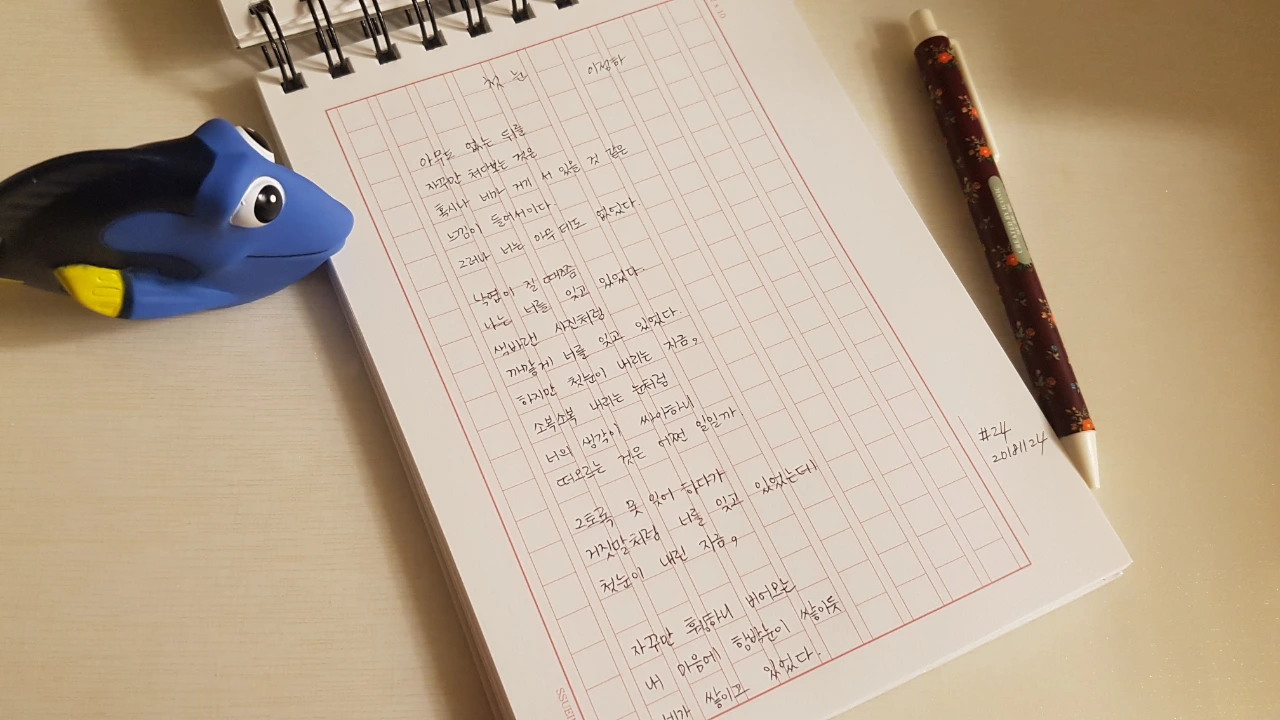 첫 눈 이정하
아무도 없는 뒤를
자꾸만 쳐다보는 것은
혹시나 네가 거기 서 있을 것 같은
느낌이 들어서이다.
그러나 너는 아무데도 없었다.
낙엽이 질 때쯤
나는 너를 잊고 있었다.
색바랜 사진처럼
까맣게 너를 잊고 있었다.
하지만 첫눈이 내리는 지금,
소복소복 내리는 눈처럼
너의 생각이 싸아하니
떠오르는 것은 어쩐 일일까
그토록 못 잊어 하다가
거짓말처럼 너를 잊고 있었는데
첫눈이 내린 지금,
자꾸만 휑하니 비어오는
내 마음에 함박눈이 쌓이듯
네가 쌓이고 있었다.
#24
20181124